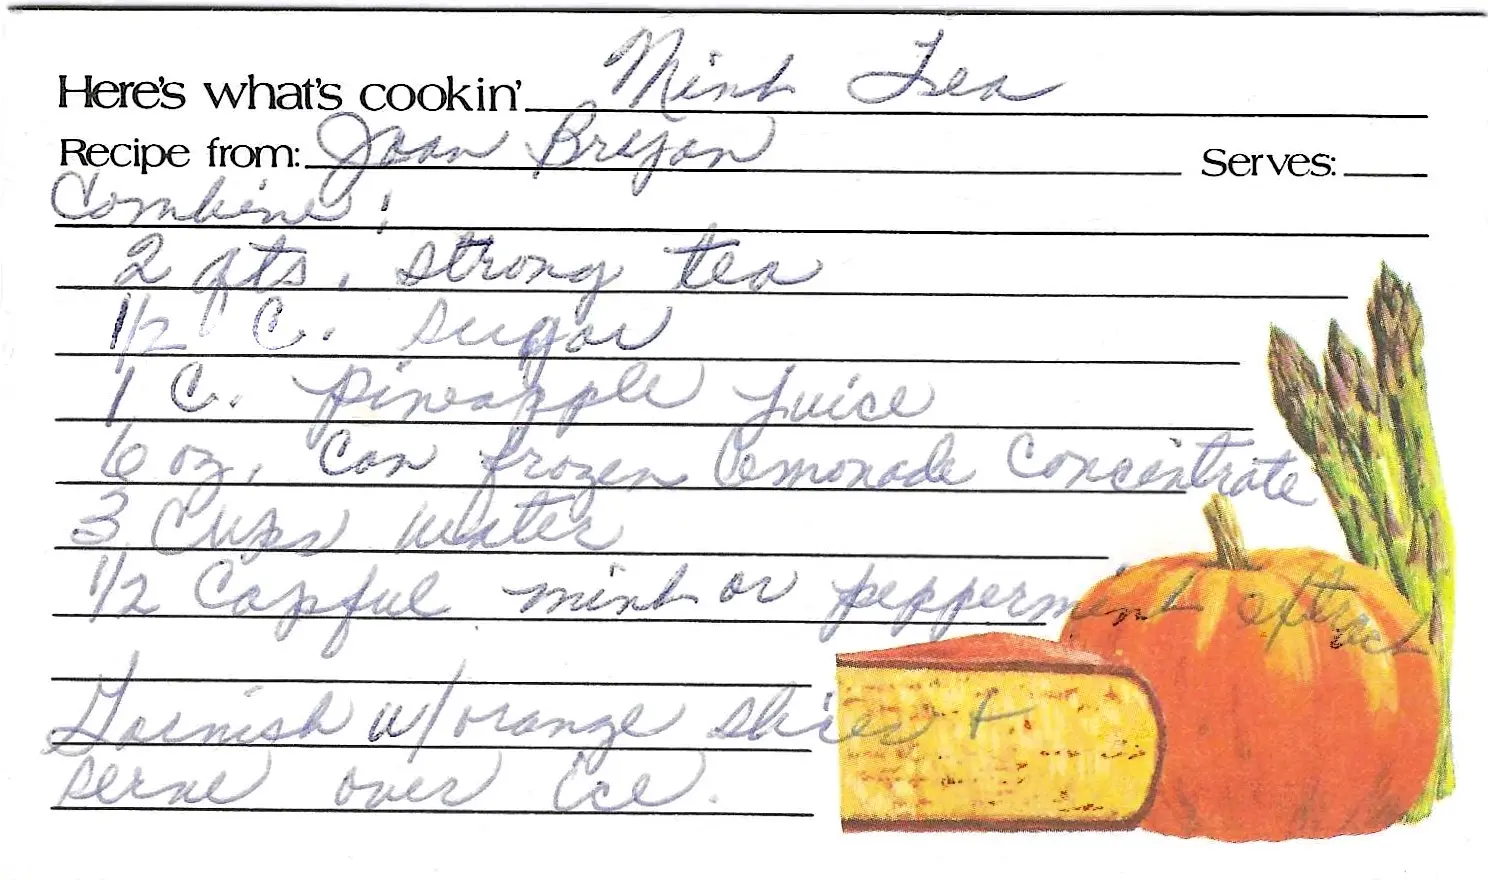 Here's what's cookin' Mint Tea
Recipe from: Joan Bryan Serves:
Combine:
2 qts. strong tea
1/2 C. sugar
1 C. pineapple juice
6 oz. can frozen lemonade concentrate
3 cups water
1/2 capful mint or peppermint extract
Garnish w/ orange slices +
serve over ice.